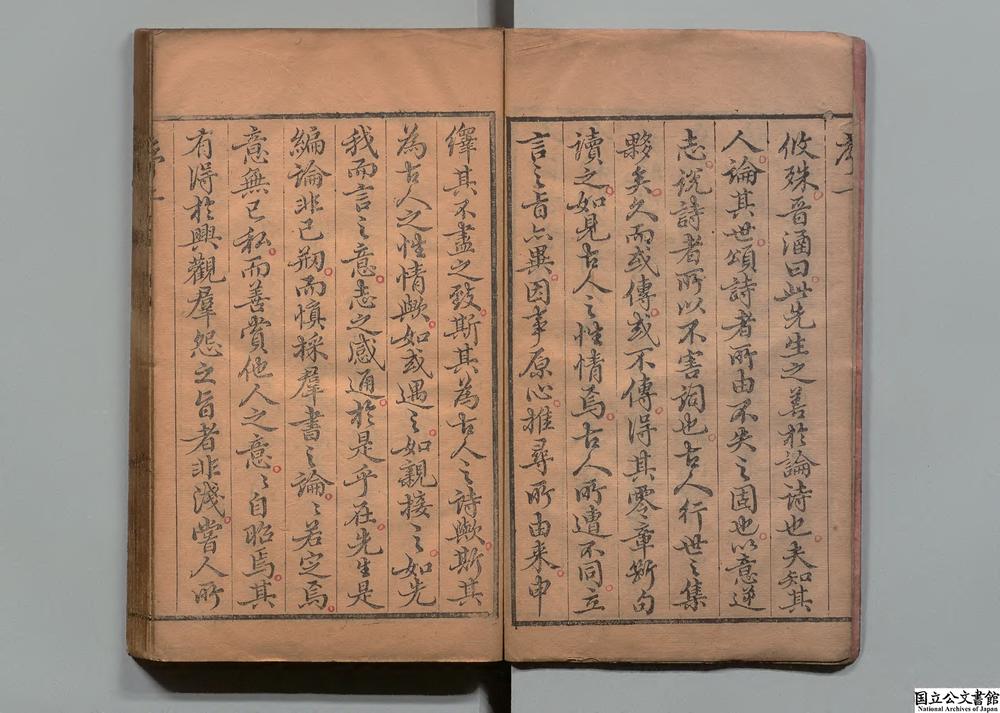 攸殊晋涵曰此先生之善於論诗也夫知其
人論其世頌詩者所由不失之固也以意逆
志說詩者所以不害詞也古人行世之集
夥矣久而或傳或不傳得其零章斷句
讀之如見古人之性情焉古人所遭不同立
言之旨亦異因事原心推尋所由来申
繹其不盡之致斯其為古人之詩歟斯其
為古人之性情歟如或遇之如親接之如先
我而言之意志之感通於是乎在先生是
編論非己剏而慎採羣書之論〻若定焉
意無己私而善賞他人之意〻自昭焉其
有得於興觀羣怨之旨者非淺嘗人所
国立公文書館
National Archives of Japan